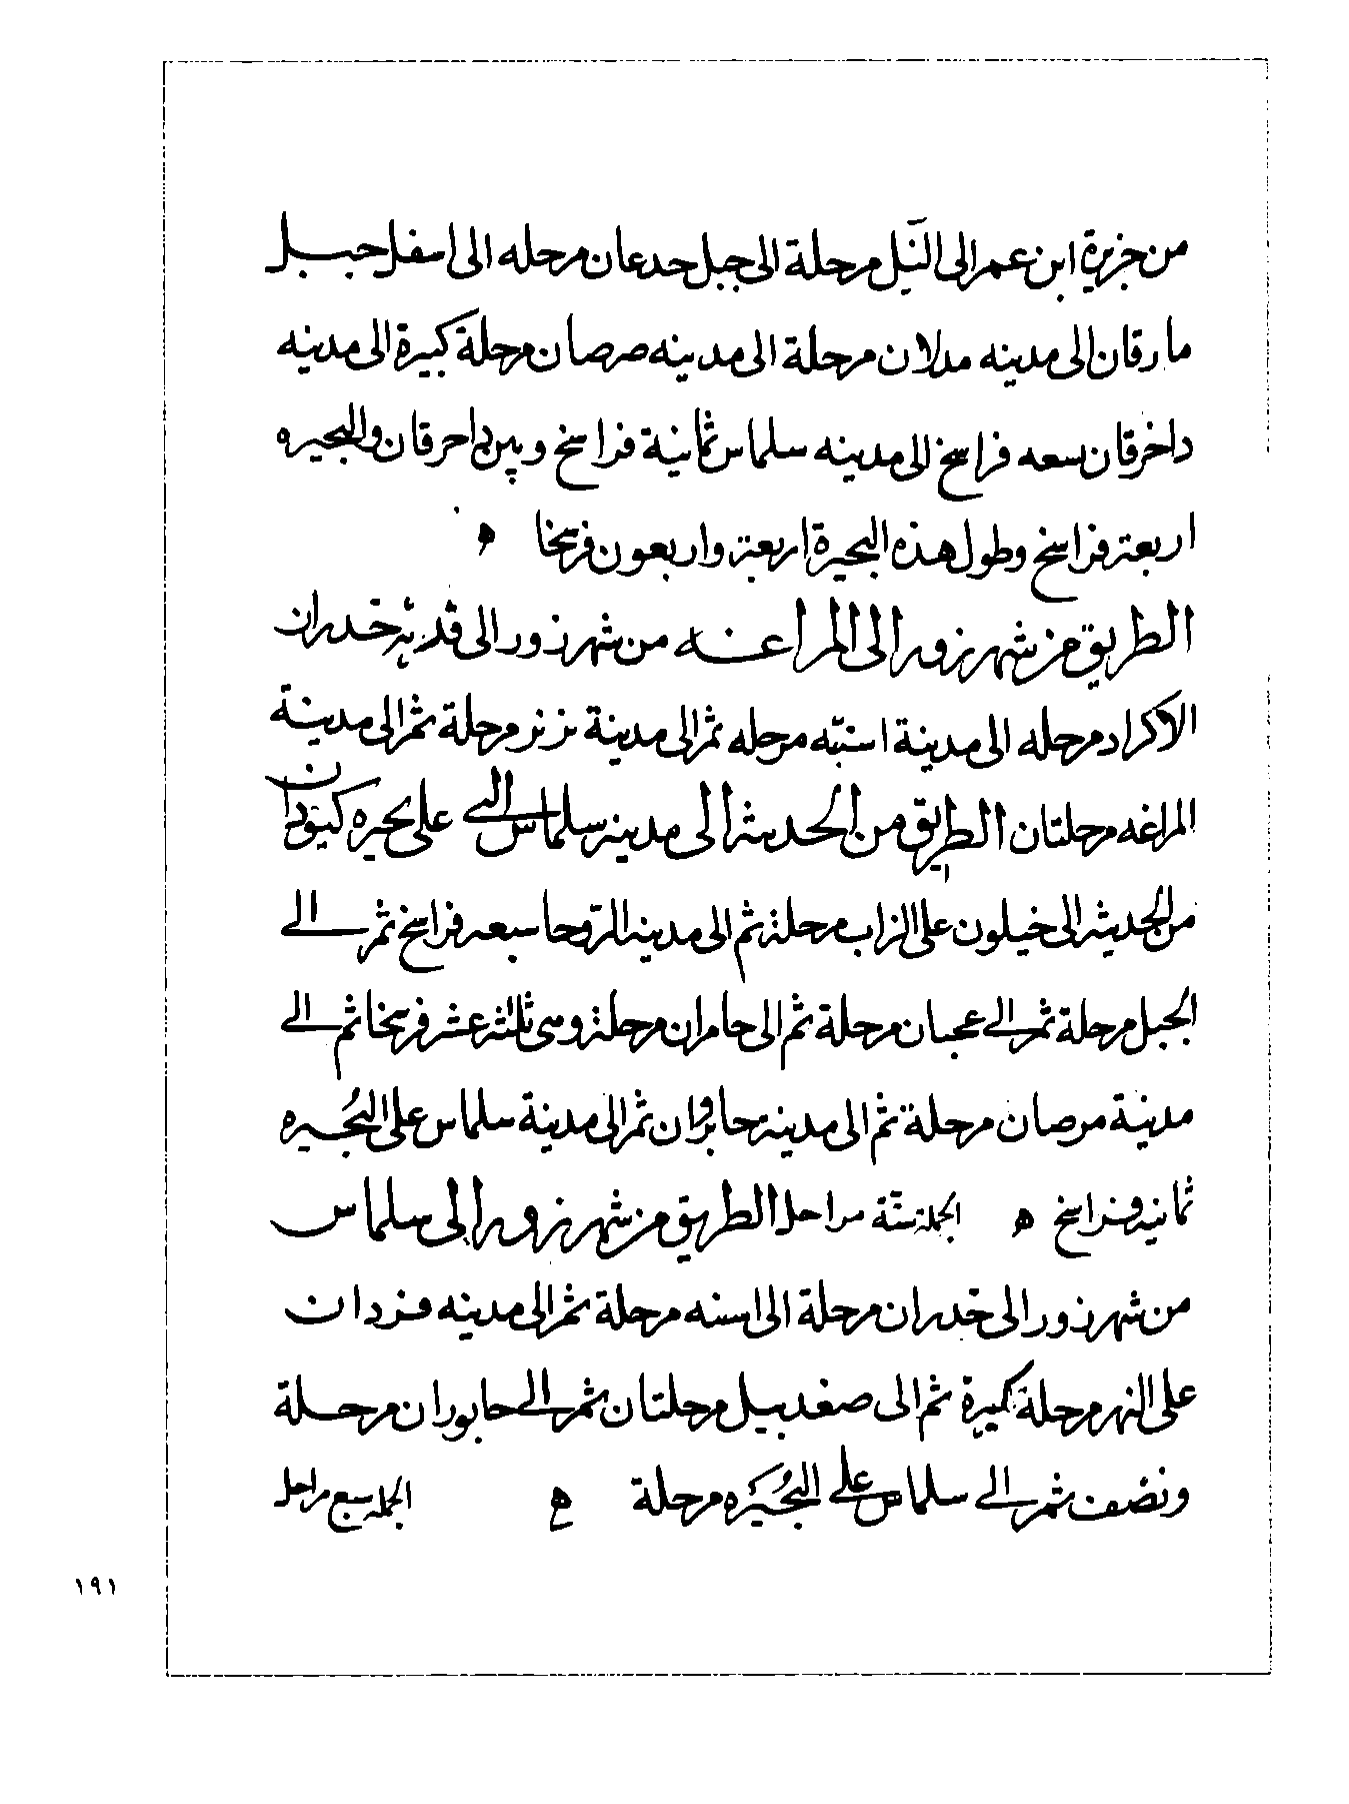 من جزيرة ابن عمر الى النَيل مرحلة الى جبل جدعان مرحله الى اسفل جبل
مارقان الى مدينه مدلان مرحلة الى مدينه صرصان مرحلة كبيرة الى مدينه
داخرقان سعه فراسخ الى مدينه سلماس ثمانية فراسخ وبين داحرقان والبحيره
اربعة فراسخ وطول هذه البحيرة اربعة واربعون فرسخا ه
الطريق من شهرزور الى المراغه من شهرزور الى قرية خدران
الاكراد مرحله الى مدينة اسنبّه مرحله ثم الى مدينة نزنز مرحلة ثم الى مدينة
المراغه مرحلتان الطريق من الحديثة الى مدينة سلماس التي على بحيره كبوذان
من الحديثة الى خيلون على الزاب مرحلة ثم الى مدينه الروحا سبعه فراسخ ثم الى
الجبل مرحلة ثم الى عجبان مرحلة ثم الى حامران مرحلة وسى ثلثة عشر فرسخا ثم الى
مدينة مرصان مرحلة ثم الى مدينة حابروان ثم الى مدينة سلماس على البُحيره
ثمانية فراسخ ه الجملة ستّة مراحل الطريق من شهرزور الى سلماس
من شهرزور الى خدران مرحلة الى اسنه مرحلة ثم الى مدينه فزدان
على النهر مرحلة كبيرة ثم الى صغدبيل مرحلتان ثم الى حابوران مرحلة
ونصف ثم الى سلماس على البُحَيره مرحلة ه الجمله سبع مراحل
١٩١